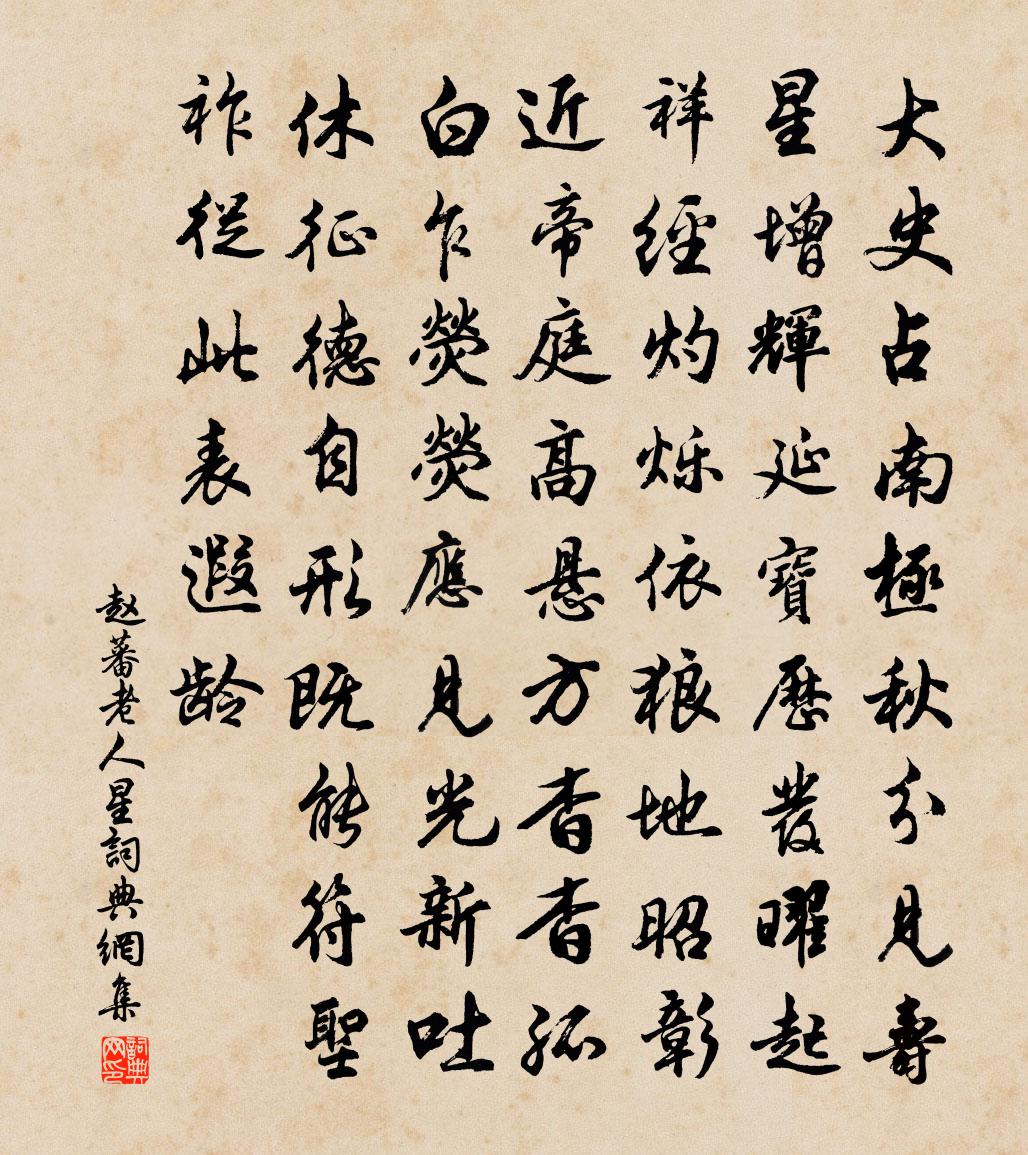 大史占南極秋分見壽
星增輝延寶曆發曜起
祥經灼爍依狼地昭彰
近帝庭高悬方杳杳孤
白乍熒熒應見光新吐
休征德自形既能符聖
祚從此表遐龄
赵蕃老人星詞典網集
詞典网印